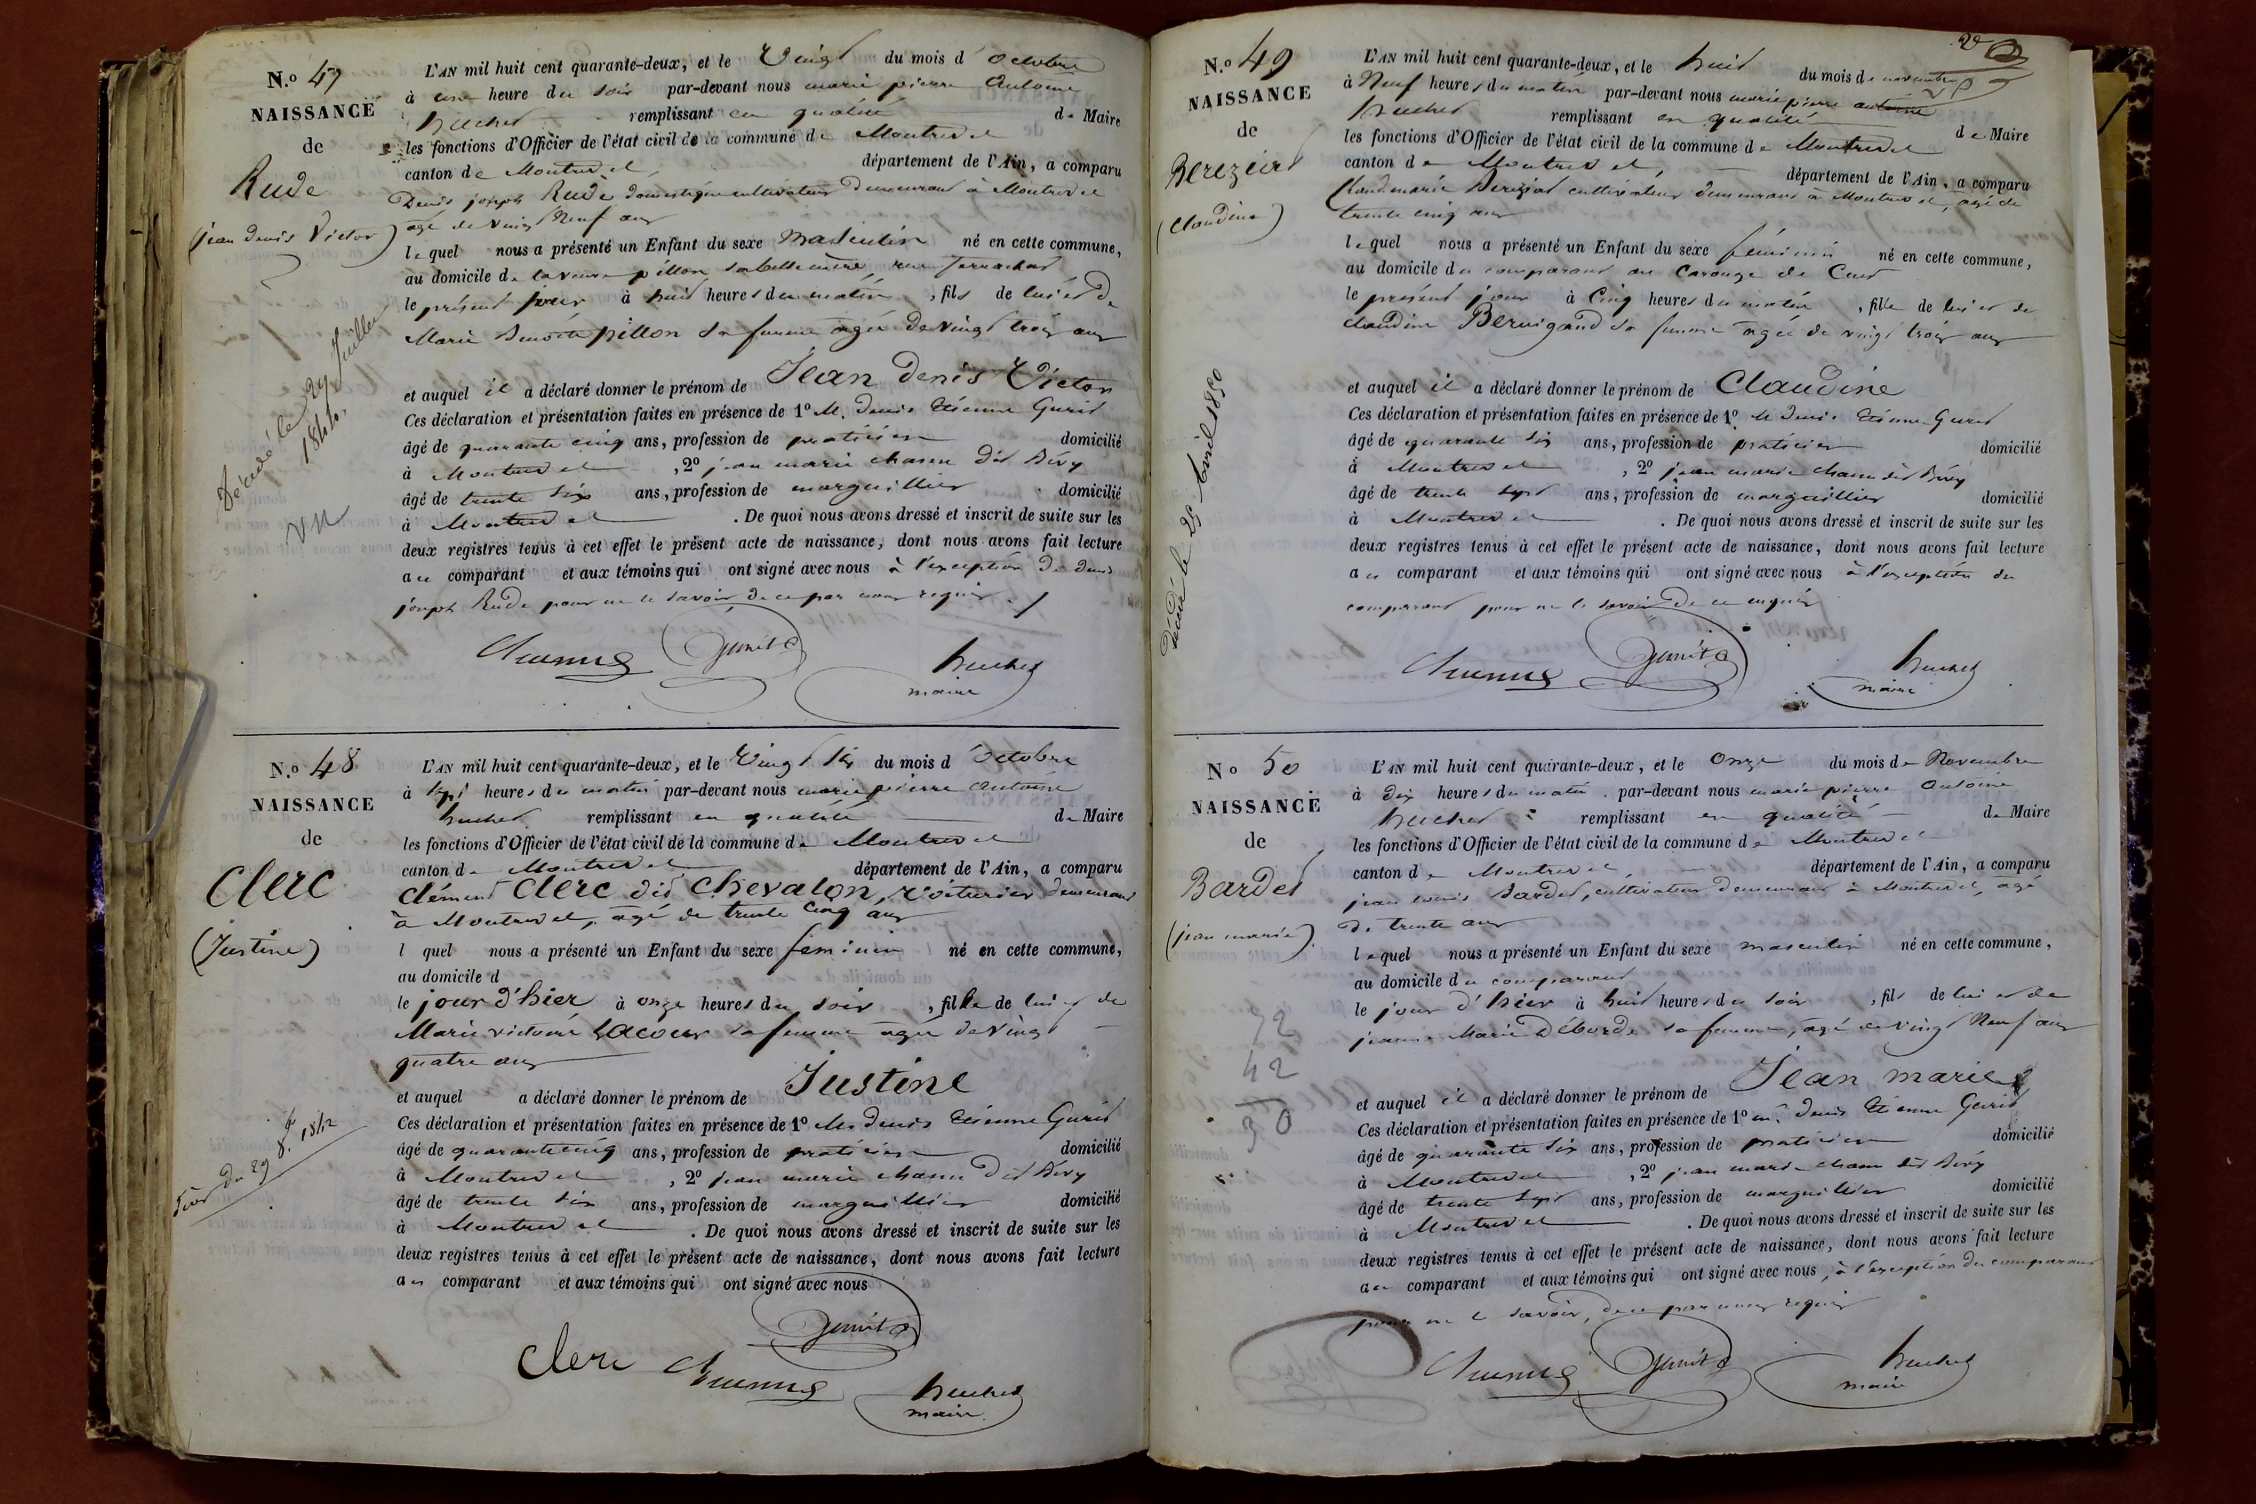 N.o 47
NAISSANCE
de
Rude
(jean denis Victor)
Décédé le 29 Juillet
1844.
L'AN mil huit cent quarante-deux, et le Vingt du mois d'octobre
à une heure du soir par-devant nous marie pierre Antoine
huchet remplissant en qualité de Maire
les fonctions d'Officier de l'état civil de la commune de Montrevel
canton de Montrevel département de l'Ain, a comparu
Denis joseph Rude domestique cultivateur demeurant à Montrevel
agé de vingt Neuf ans
lequel nous a présenté un Enfant du sexe Masculin né en cette commune,
au domicile de la veuve pillon sa belle mère, rue
le présent jour à huit heures du matin, fils de lui et de
Marie Benoite pillon sa femme agée de vingt trois ans
et auquel il a déclaré donner le prénom de Jean denis Victor
Ces déclaration et présentation faites en présence de 1° M. Denis Etienne
âgé de quarante cinq ans, profession de praticien domicilié
à Montrevel, 2° jean marie dit
âgé de trente six ans, profession de marguillier domicilié
à Montrevel. De quoi nous avons dressé et inscrit de suite sur les
deux registres tenus à cet effet le présent acte de naissance, dont nous avons fait lecture
au comparant et aux témoins qui ont signé avec nous à l'exception de denis
joseph Rude pour ne le savoir de ce par nous requis
huchet
maire
N.o 48
NAISSANCE
de
Clerc
(Justine)
L'AN mil huit cent quarante-deux, et le Vingt six du mois d'octobre
à sept heures du matin par-devant nous marie pierre antoine
huchet remplissant en qualité de Maire
les fonctions d'Officier de l'état civil de la commune de Montrevel
canton de Montrevel département de l'Ain, a comparu
Clément Clerc dit Chevalon, voiturier demeurant
à Montrevel, agé de trente cinq ans
l quel nous a présenté un Enfant du sexe feminin né en cette commune,
au domicile d
le jour d'hier à onze heures du soir, fille de lui et de
Marie victoire Lacour sa femme agée de vingt
quatre ans
et auquel a déclaré donner le prénom de Justine
Ces déclaration et présentation faites en présence de 1° M. denis Etienne
âgé de quarante cinq ans, profession de praticien domicilié
à Montrevel, 2° jean marie dit
âgé de trente six ans, profession de marguillier domicilié
à Montrevel. De quoi nous avons dressé et inscrit de suite sur les
deux registres tenus à cet effet le présent acte de naissance, dont nous avons fait lecture
au comparant et aux témoins qui ont signé avec nous
Clerc
huchet
maire
N.o 49
NAISSANCE
de
Bereziat
(Claudine)
Décédé le 29 Avril 1850
L'AN mil huit cent quarante-deux, et le huit du mois de novembre
à Neuf heures du matin par-devant nous marie pierre antoine
huchet remplissant en qualité de Maire
les fonctions d'Officier de l'état civil de la commune de Montrevel
canton de Montrevel, département de l'Ain, a comparu
Claude marie Bereziat cultivateur demeurant à Montrevel, agé de
trente cinq ans
lequel nous a présenté un Enfant du sexe féminin né en cette commune,
au domicile du comparant au Carouge de
le présent jour à Cinq heures du matin, fille de lui et de
claudine sa femme agée de vingt trois ans
et auquel il a déclaré donner le prénom de Claudine
Ces déclaration et présentation faites en présence de 1° M denis Etienne
âgé de quarante six ans, profession de praticien domicilié
à Montrevel, 2° jean marie dit
âgé de trente sept ans, profession de marguillier domicilié
à Montrevel. De quoi nous avons dressé et inscrit de suite sur les
deux registres tenus à cet effet le présent acte de naissance, dont nous avons fait lecture
au comparant et aux témoins qui ont signé avec nous à l'exception du
comparant pour ne le savoir de ce requis
huchet
maire
No 50
NAISSANCE
de
Bardet
(jean marie)
42
30
L'AN mil huit cent quarante-deux, et le onze du mois de Novembre
à dix heures du matin par-devant nous marie pierre Antoine
huchet remplissant en qualité de Maire
les fonctions d'Officier de l'état civil de la commune de Montrevel
canton de Montrevel, département de l'Ain, a comparu
jean louis Bardet, cultivateur demeurant à Montrevel, agé
de trente ans
lequel nous a présenté un Enfant du sexe masculin né en cette commune,
au domicile du comparant
le jour d'hier à huit heures du soir, fils de lui et de
jeanne Marie Deborde sa femme, agée de vingt Neuf ans
et auquel il a déclaré donner le prénom de Jean marie
Ces déclaration et présentation faites en présence de 1° M. denis Etienne
âgé de quarante six ans, profession de praticien domicilié
à Montrevel, 2° jean marie dit
âgé de trente sept ans, profession de marguillier domicilié
à Montrevel. De quoi nous avons dressé et inscrit de suite sur les
deux registres tenus à cet effet le présent acte de naissance, dont nous avons fait lecture
au comparant et aux témoins qui ont signé avec nous, à l'exception du comparant
pour ne le savoir, de ce par nous requis
huchet
maire